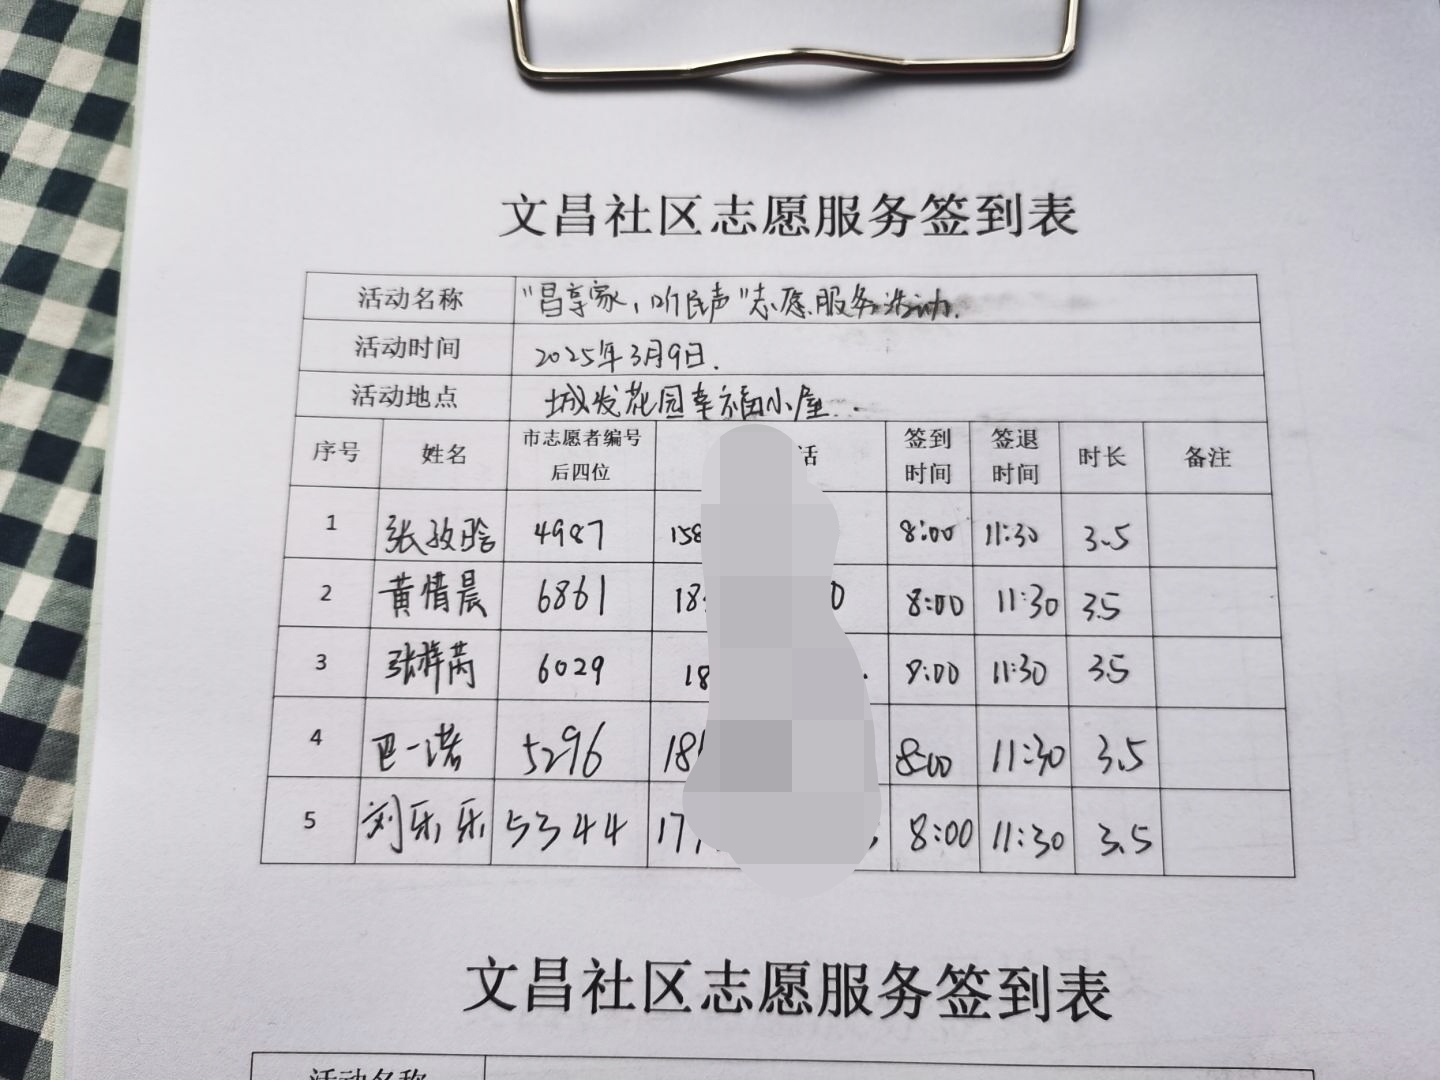 文昌社区志愿服务签到表
活动名称 "昌享家，听民声"志愿服务活动.
活动时间 2025年3月9日.
活动地点 城发花园幸福小屋.
序号 姓名 市志愿者编号后四位 话 签到时间 签退时间 时长 备注
1 张 4987 158 8:00 11:30 3.5
2 黄惜晨 6861 18 0 8:00 11:30 3.5
3 张 6029 18 8:00 11:30 3.5
4 巴一诺 5296 18 8:00 11:30 3.5
5 刘乐乐 5344 17 8:00 11:30 3.5
文昌社区志愿服务签到表
活动名称